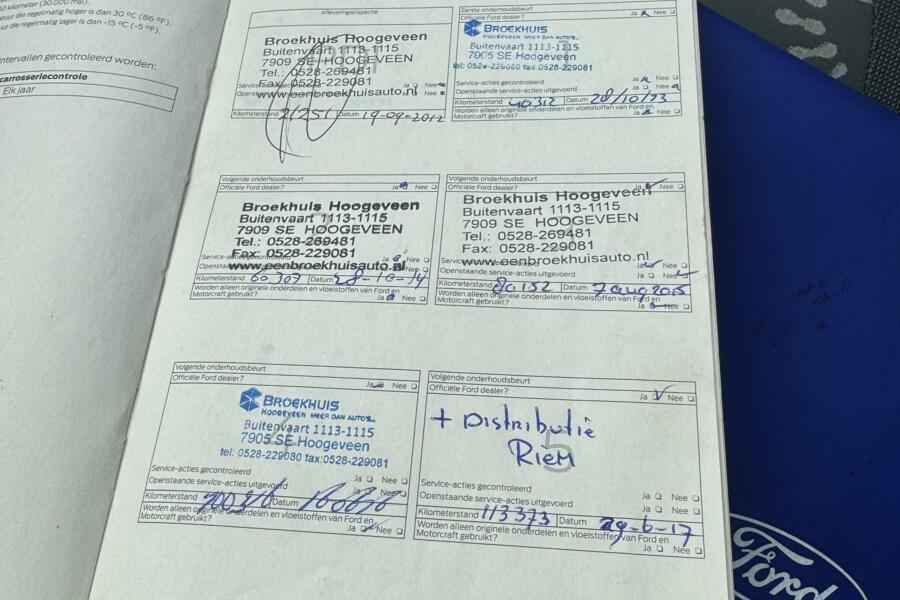 kilometer (30.000 mi).
tuur die regelmatig hoger is dan 30 °C (86 °F).
uur die regelmatig lager is dan -15 °C (-5 °F).
intervallen gecontroleerd worden:
carrosseriecontrole
Elk jaar
Afleveringsinspectie
Broekhuis Hoogeveen
Buitenvaart 1113-1115
7909 SE HOOGEVEEN
Tel.: 0528-269481
Fax: 0528-229081
www.eenbroekhuisauto.nl
Kilometerstand 21251 Datum 19-09-2012
Eerste onderhoudsbeurt
Officiële Ford dealer? Ja Nee
BROEKHUIS
HOOGEVEEN MEER DAN AUTO'S...
Buitenvaart 1113-1115
7905 SE Hoogeveen
tel: 0528-229080 fax:0528-229081
Service-acties gecontroleerd Ja Nee
Openstaande service-acties uitgevoerd Ja Nee
Kilometerstand 40312 Datum 28/10/13
Worden alleen originele onderdelen en vloeistoffen van Ford en
Motorcraft gebruikt? Ja Nee
Volgende onderhoudsbeurt
Officiële Ford dealer? Ja Nee
Broekhuis Hoogeveen
Buitenvaart 1113-1115
7909 SE HOOGEVEEN
Tel.: 0528-269481
Fax: 0528-229081
www.eenbroekhuisauto.nl
Kilometerstand 60307 Datum 28-10-14
Worden alleen originele onderdelen en vloeistoffen van Ford en
Motorcraft gebruikt? Ja Nee
Volgende onderhoudsbeurt
Officiële Ford dealer? Ja Nee
Broekhuis Hoogeveen
Buitenvaart 1113-1115
7909 SE HOOGEVEEN
Tel.: 0528-269481
Fax: 0528-229081
www.eenbroekhuisauto.nl
Openstaande service-acties uitgevoerd Ja Nee
Kilometerstand 80152 Datum 7 aug 2015
Worden alleen originele onderdelen en vloeistoffen van Ford en
Motorcraft gebruikt? Ja Nee
Volgende onderhoudsbeurt
Officiële Ford dealer? Ja Nee
BROEKHUIS
HOOGEVEEN MEER DAN AUTO'S...
Buitenvaart 1113-1115
7905 SE Hoogeveen
tel: 0528-229080 fax:0528-229081
Service-acties gecontroleerd Ja Nee
Openstaande service-acties uitgevoerd Ja Nee
Kilometerstand Datum
Worden alleen originele onderdelen en vloeistoffen van Ford en
Motorcraft gebruikt? Ja Nee
Volgende onderhoudsbeurt
Officiële Ford dealer? Ja Nee
+ Distributie
Riem
5
Service-acties gecontroleerd Ja Nee
Openstaande service-acties uitgevoerd Ja Nee
Kilometerstand 113373 Datum 29-6-17
Worden alleen originele onderdelen en vloeistoffen van Ford en
Motorcraft gebruikt? Ja Nee
Ford